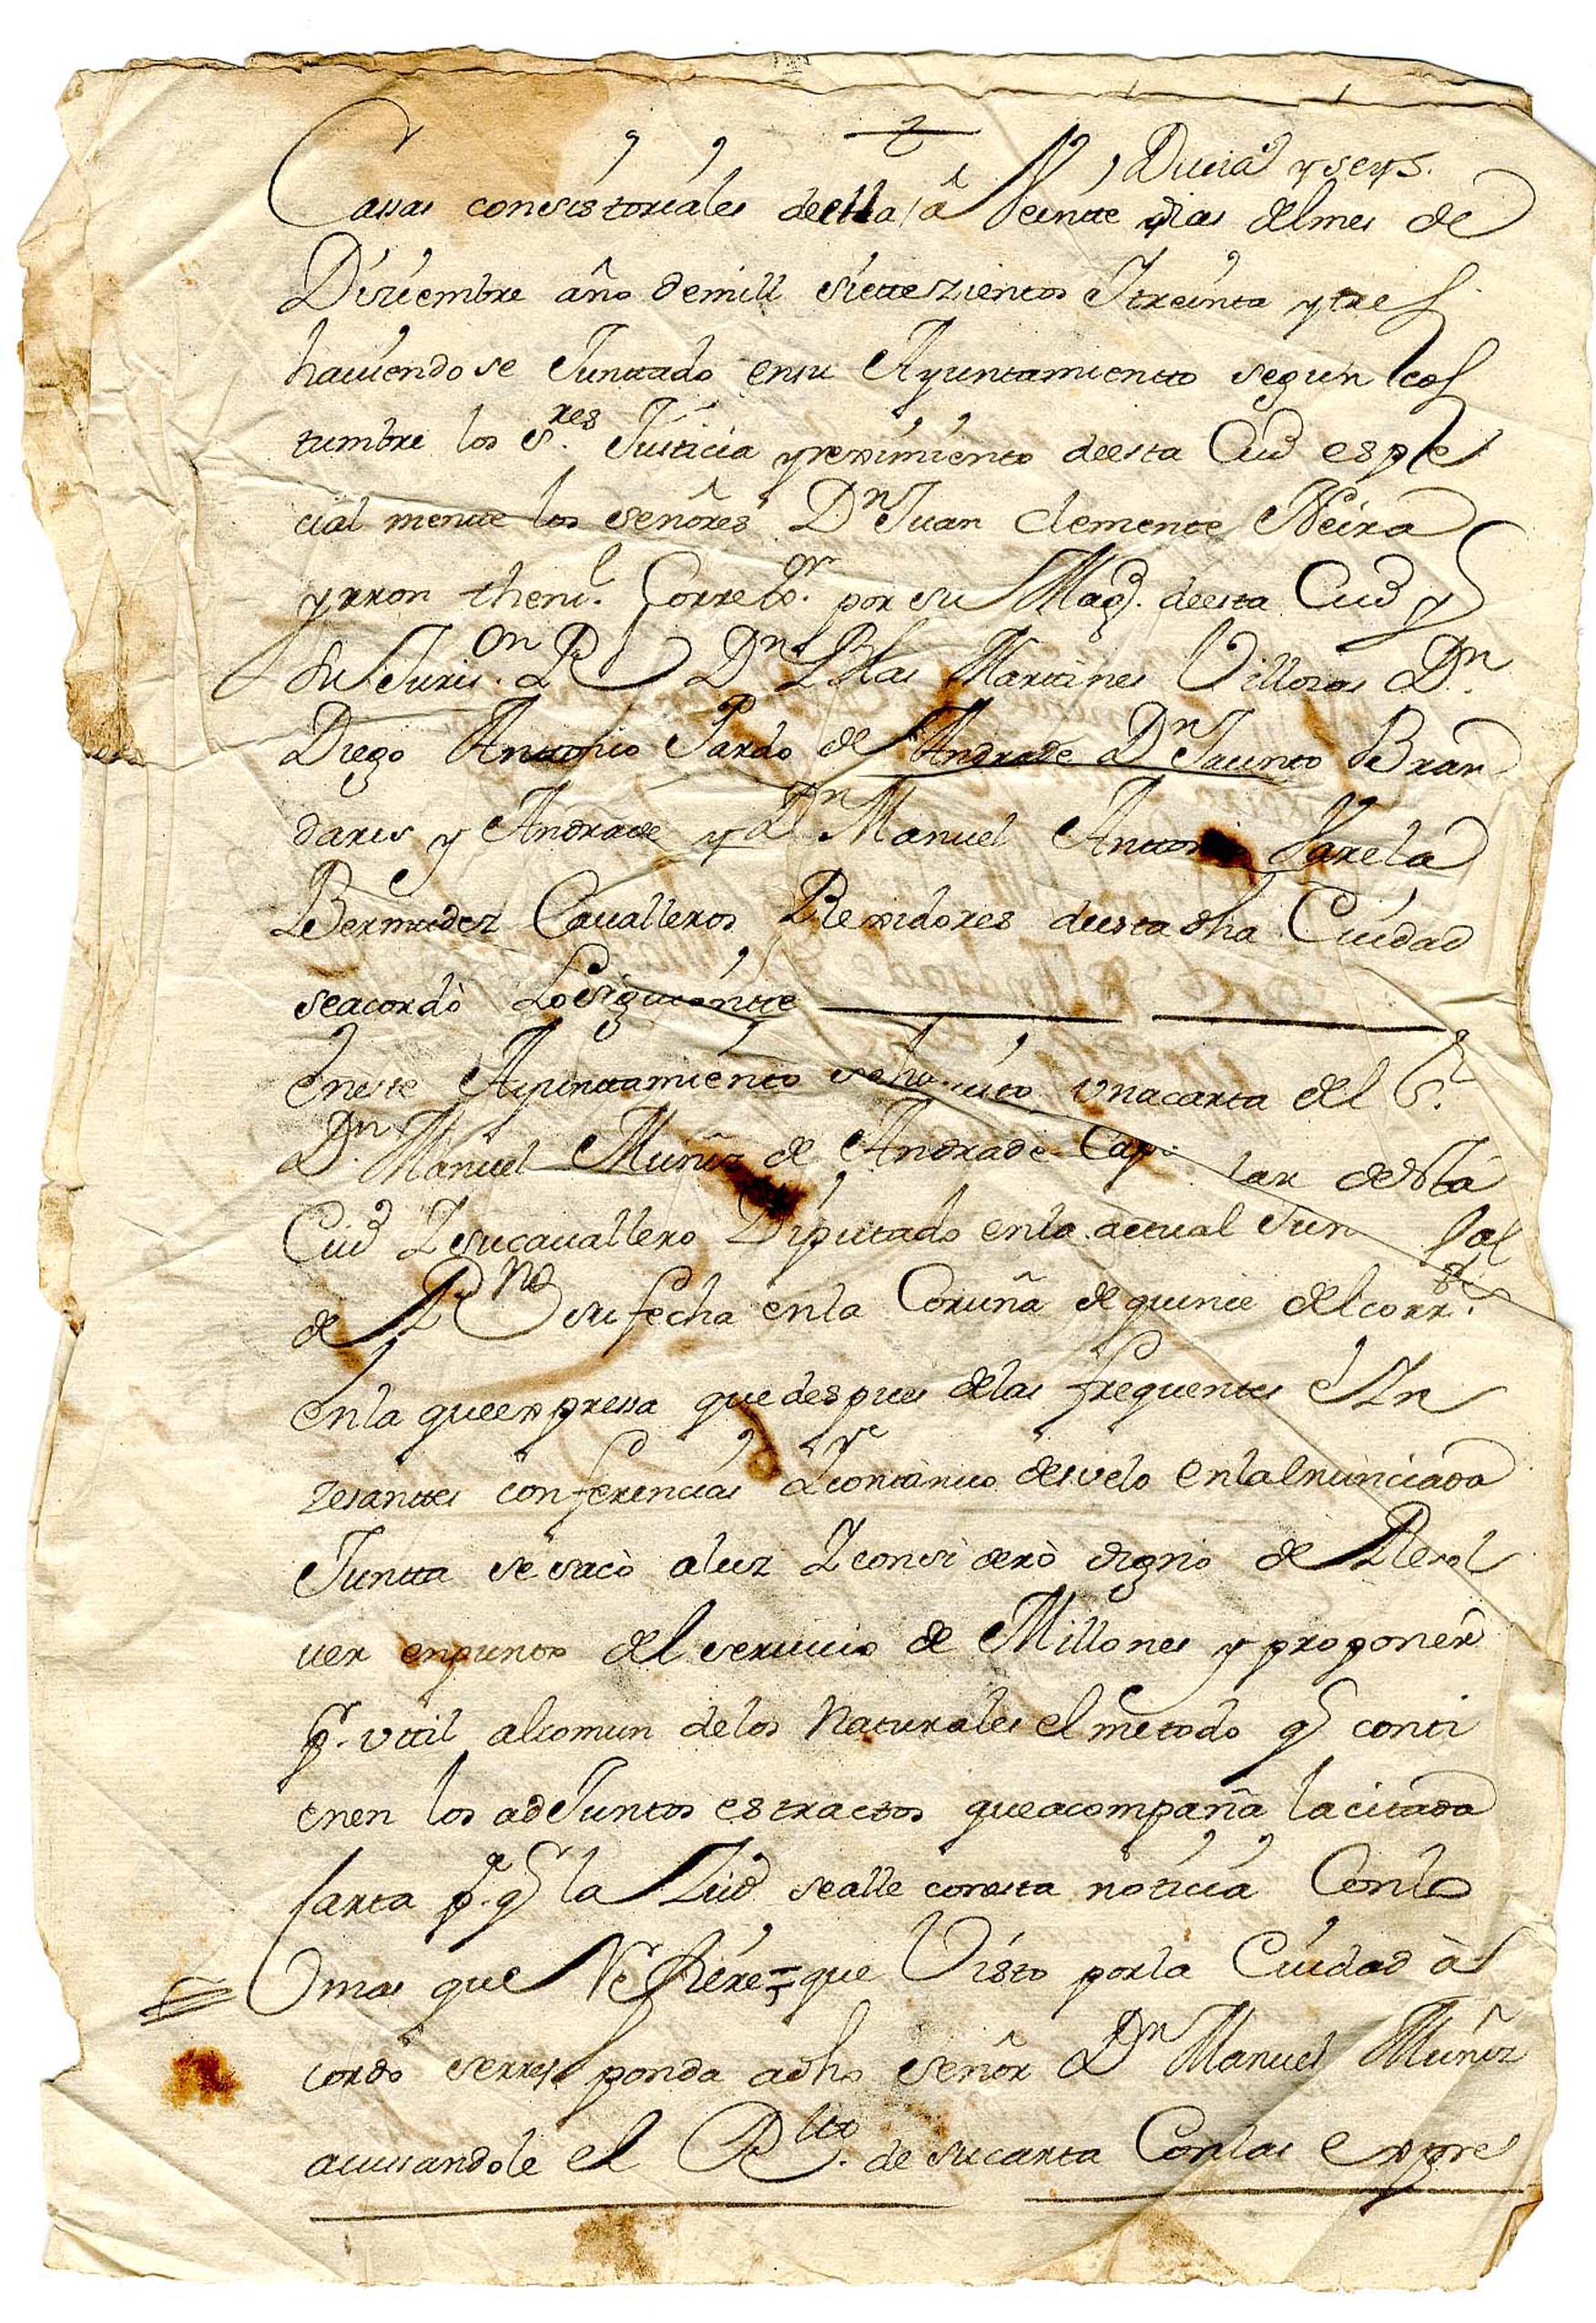 y seys.
Cassas consistoriales de ella / a Veinte dias del mes de
Diziembre año de mill siettezientos Y treinta y tres
haviendose Junttado en su Ayuntamientto segun cos
tumbre los S.res Justicia y reximiento de esta Ciud espe
cial mentte los señores Dn Juan Clemente Neira
yrron thenit. Correxor. por su Magd. de esta Ciud y
su Juris.on Rl Dn Blas Martines Villozas Dn.
Diego Anttonio Pardo de Andrade Dn Jacinto Bran
daris y Andrade y Dn Manuel Anttonio Varela
Bermudez Cavalleros Rexidores de esta dha Ciudad
se acordò Lo siguientte
En este Ayunttamiento se ha visto una carta del Sr.
Dn. Manuel Muñiz de Andrade Capi lar de Sta
Ciud Y su cavallero Diputado en la actual Jun
de Rno su fecha en la Coruña de quince del corr.te
en la que expressa que despues de las frequentes e In
zesanttes conferencias Y continuo desvelo en la enunciada
Juntta se sacò a luz Y considerò digno de Resol
ver en punto del servicio de Millones y proponer
pr. util al comun de los Naturales el metodo q conti
enen los adJuntos estractos que acompaña la citada
Carta pa. q la Ziud se alle con esta noticia Con lo
mas que Refhére = que Visto por la Ciudad a
cordo se rresponda a dho señor Dn Manuel Muñiz
acusandole el Rtto. de su carta Con las expre